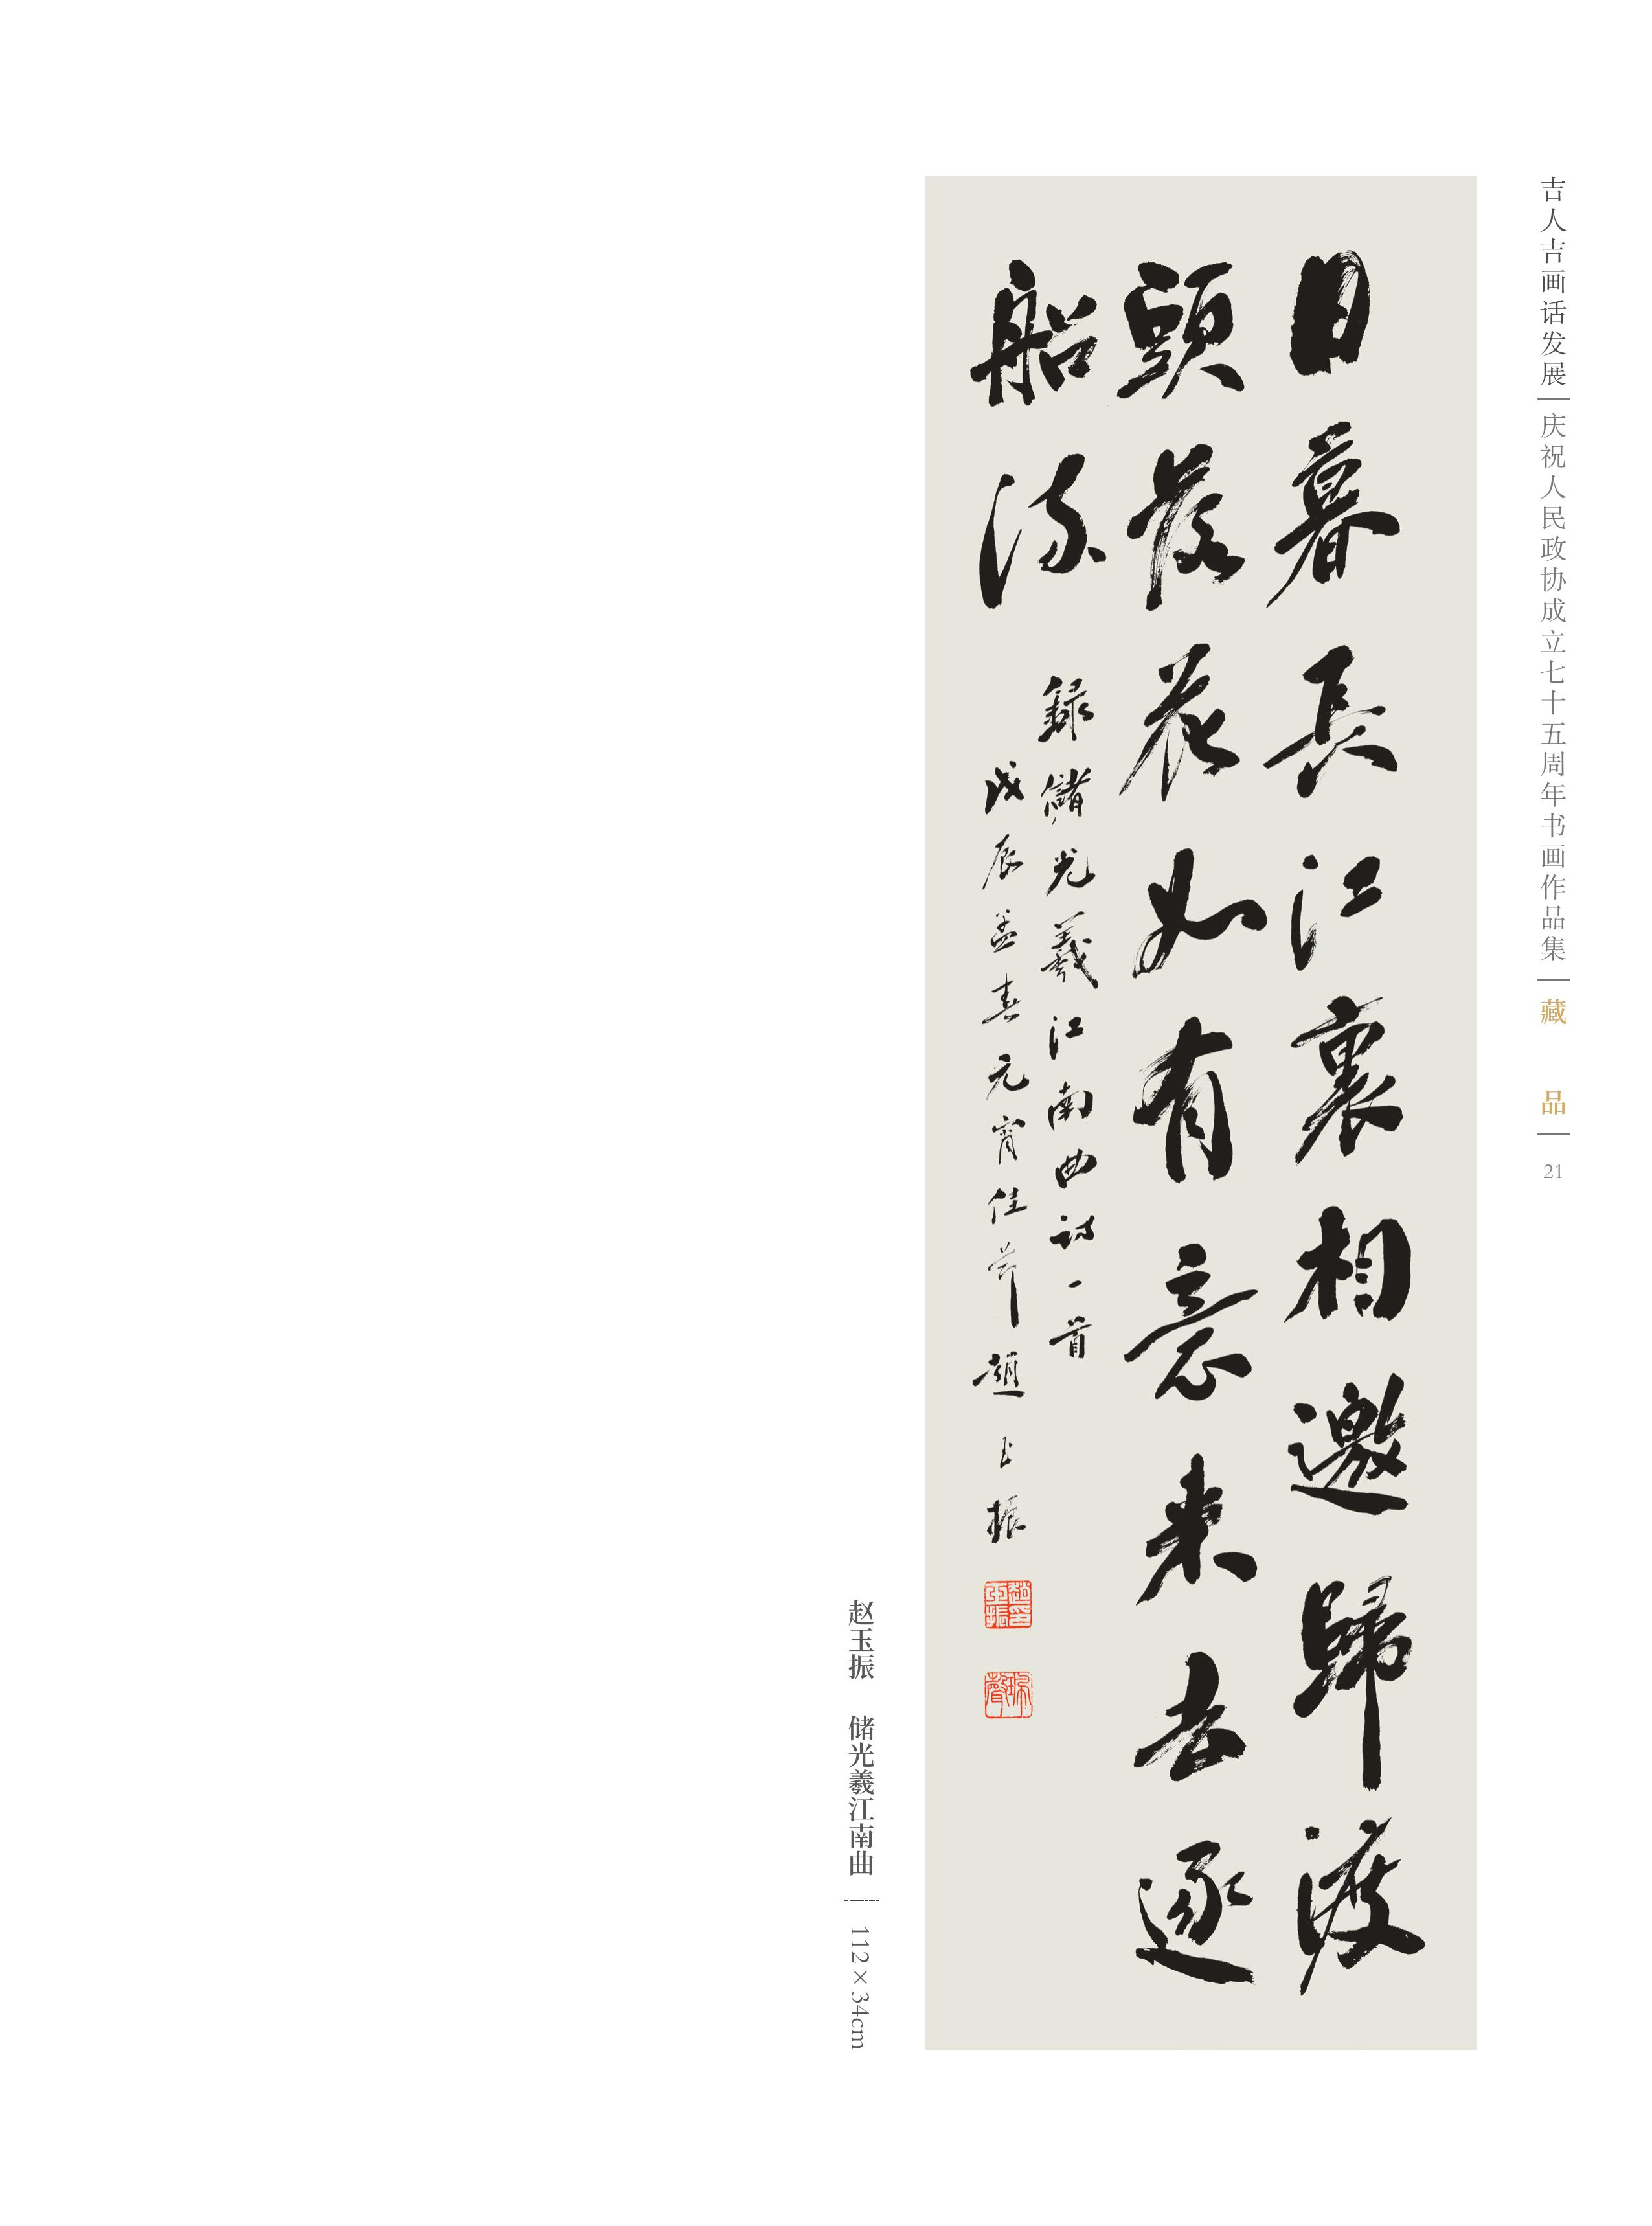 吉人吉画话发展
庆祝人民政协成立七十五周年书画作品集
藏品
21
日暮長江裏相邀歸渡
頭落花如有意来去逐
船流
録儲光羲江南曲詩一首
戊辰孟春元宵佳节趙玉振
赵玉振 储光羲江南曲
112×34cm